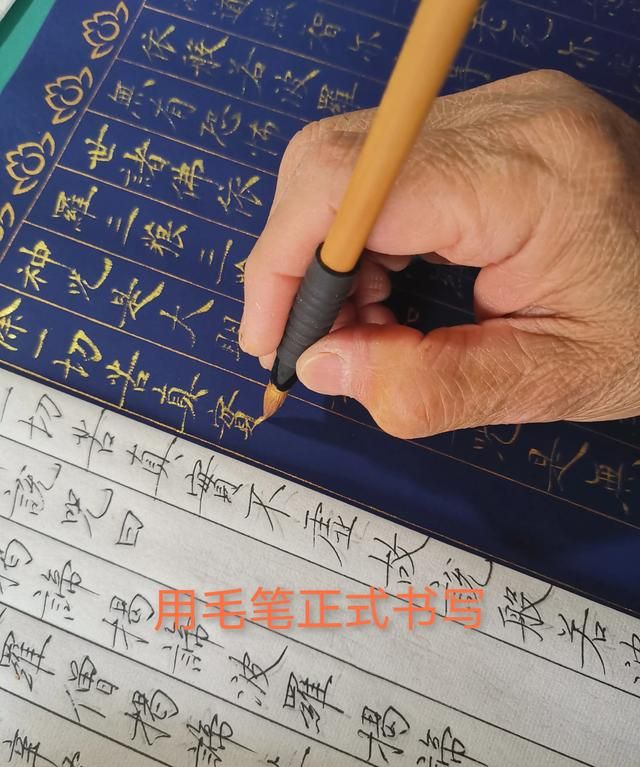 無智亦
老死亦
依般若波羅
無有恐怖
世諸佛依
羅三藐三
神咒是大
咒是無
除一切苦真實
一切苦真實不虛故說般若波
說咒曰
揭諦揭諦波羅揭諦
羅僧揭諦
用毛笔正式书写